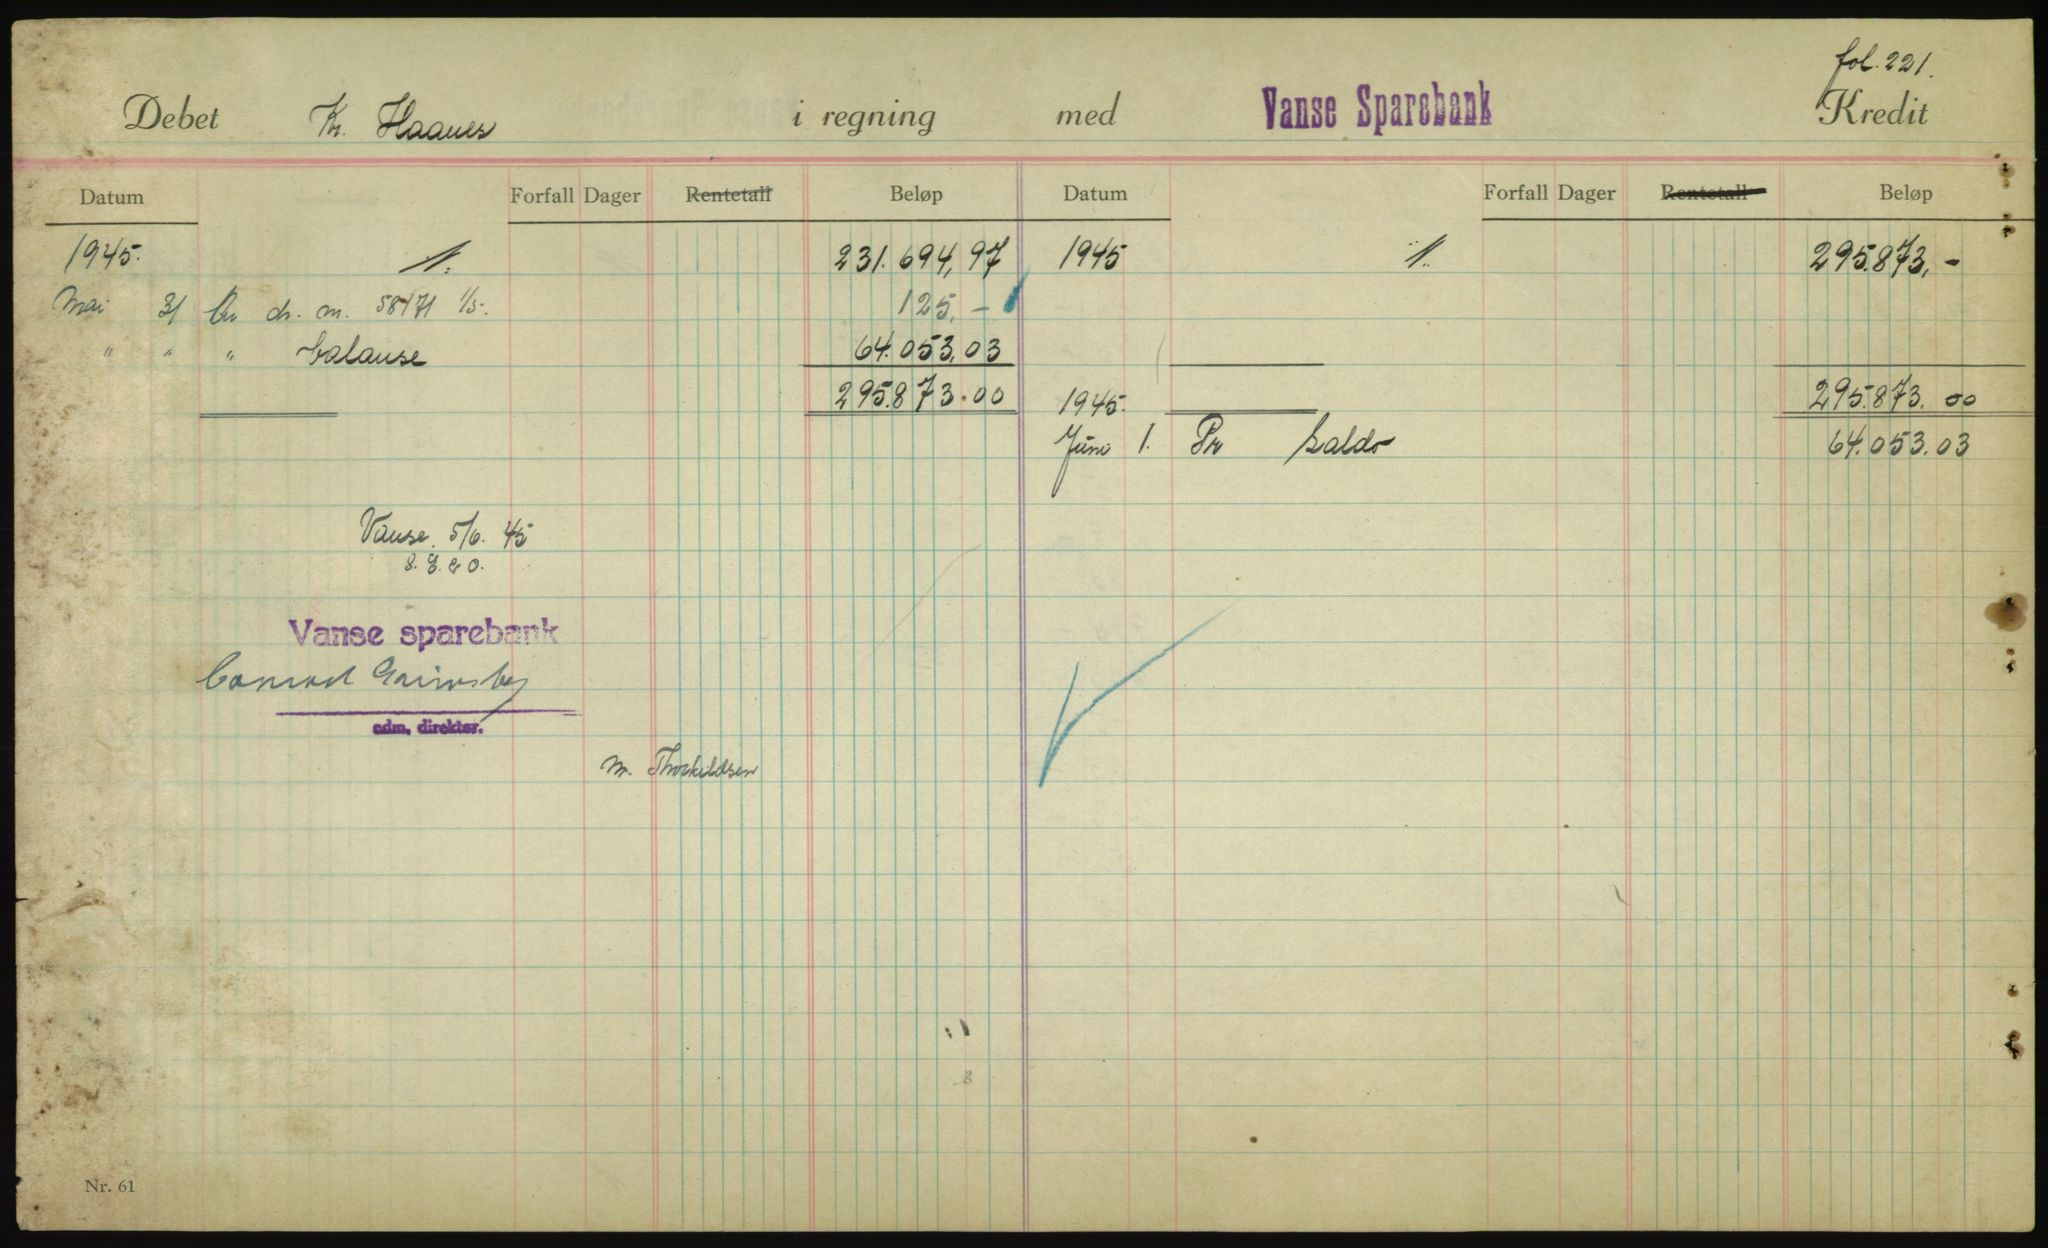 fol. 221.
Debet Kr. Haanes i regning med Vanse Sparebank Kredit
Datum Forfall Dager Rentetall Beløp Datum Forfall Dager Rentetall Beløp
1945. 231.694,97 1945 295.873,-
Mai 31 An ch. m. 58171 1/5. 125,-
" " " balanse 64.053,03
295.873.00 1945. 295.873.00
Juni 1. Pr Saldo 64.053.03
Vanse, 5/6. 45
S. E. & O.
Vanse sparebank
adm. direktør.
M. Thorkildsen
Nr. 61